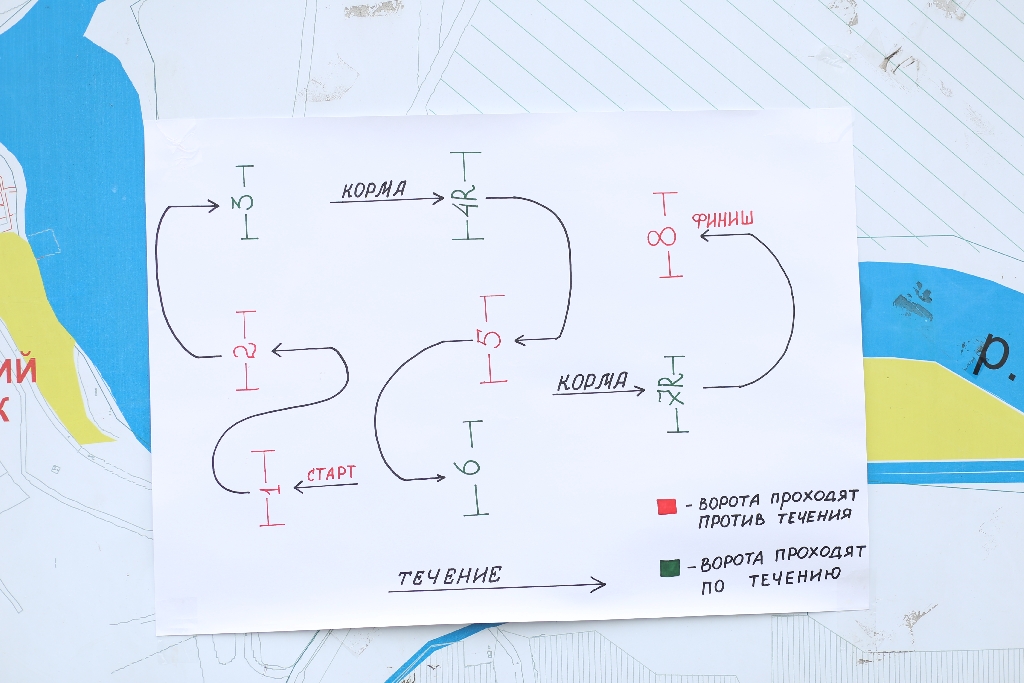 3
КОРМА
4R
8
ФИНИШ
2
5
КОРМА
7R
1
СТАРТ
6
- ВОРОТА ПРОХОДЯТ
ПРОТИВ ТЕЧЕНИЯ
- ВОРОТА ПРОХОДЯТ
ПО ТЕЧЕНИЮ
ТЕЧЕНИЕ
ИЙ
К
р.